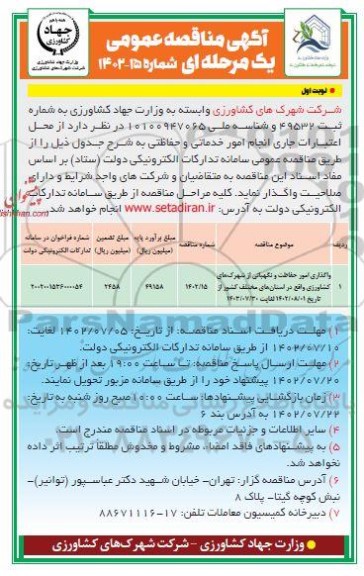 آگهی مناقصه عمومی
یک مرحله ای شماره ۱۵-۱۴۰۲
جهاد
کشاورزی
نوبت اول
شرکت شهرک های کشاورزی وابسته به وزارت جهاد کشاورزی به شماره
ثبت ۴۹۵۳۲ و شناسه ملی ۱۰۱۰۰۹۴۷۰۶۵ در نظر دارد از محل
اعتبارات جاری انجام امور خدماتی و حفاظتی به شرح جدول ذیل را از
طریق مناقصه عمومی سامانه تدارکات الکترونیکی دولت (ستاد) بر اساس
مفاد اسناد این مناقصه به متقاضیان و شرکت های واجد شرایط و دارای
صلاحیت واگذار نماید. کلیه مراحل مناقصه از طریق سامانه تدارکات
الکترونیکی دولت به آدرس: www.setadiran.ir انجام خواهد شد.
ردیف موضوع مناقصه شماره مناقصه مبلغ برآورد پایه (میلیون ریال) مبلغ تضمین (میلیون ریال) شماره فراخوان در سامانه تدارکات الکترونیکی دولت
واگذاری امور حفاظت و نگهبانی از شهرک‌های
۱ کشاورزی واقع در استان‌های مختلف کشور از ۱۴۰۲/۱۵ ۴۹۱۵۸ ۲۴۵۸ ۲۰۰۲۰۰۱۵۳۶۰۰۰۰۵۴
تاریخ ۱۴۰۲/۰۸/۰۱ لغایت ۱۴۰۳/۰۷/۳۰
۱) مهلت دریافت اسناد مناقصه: از تاریخ: ۱۴۰۲/۰۷/۰۵ لغایت:
۱۴۰۲/۰۷/۱۰ از طریق سامانه تدارکات الکترونیکی دولت.
۲) مهلت ارسال پاسخ مناقصه: تا ساعت ۱۹:۰۰ بعد از ظهر تاریخ:
۱۴۰۲/۰۷/۲۰ پیشنهاد خود را از طریق سامانه مزبور تحویل نمایند.
۳) زمان بازگشایی پیشنهادها: ساعت ۱۰:۰۰ صبح روز شنبه به تاریخ:
۱۴۰۲/۰۷/۲۲ به آدرس بند ۶
۴) سایر اطلاعات و جزئیات مربوطه در اسناد مناقصه مندرج است.
۵) به پیشنهادهای فاقد امضاء، مشروط و مخدوش مطلقاً ترتیب اثر داده
نخواهد شد.
۶) آدرس مناقصه گزار: تهران- خیابان شهید دکتر عباسپور (توانیر)-
نبش کوچه گیتا- پلاک ۸
۷) دبیرخانه کمیسیون معاملات تلفن: ۱۷-۸۸۶۷۱۱۱۶
وزارت جهاد کشاورزی - شرکت شهرک‌های کشاورزی